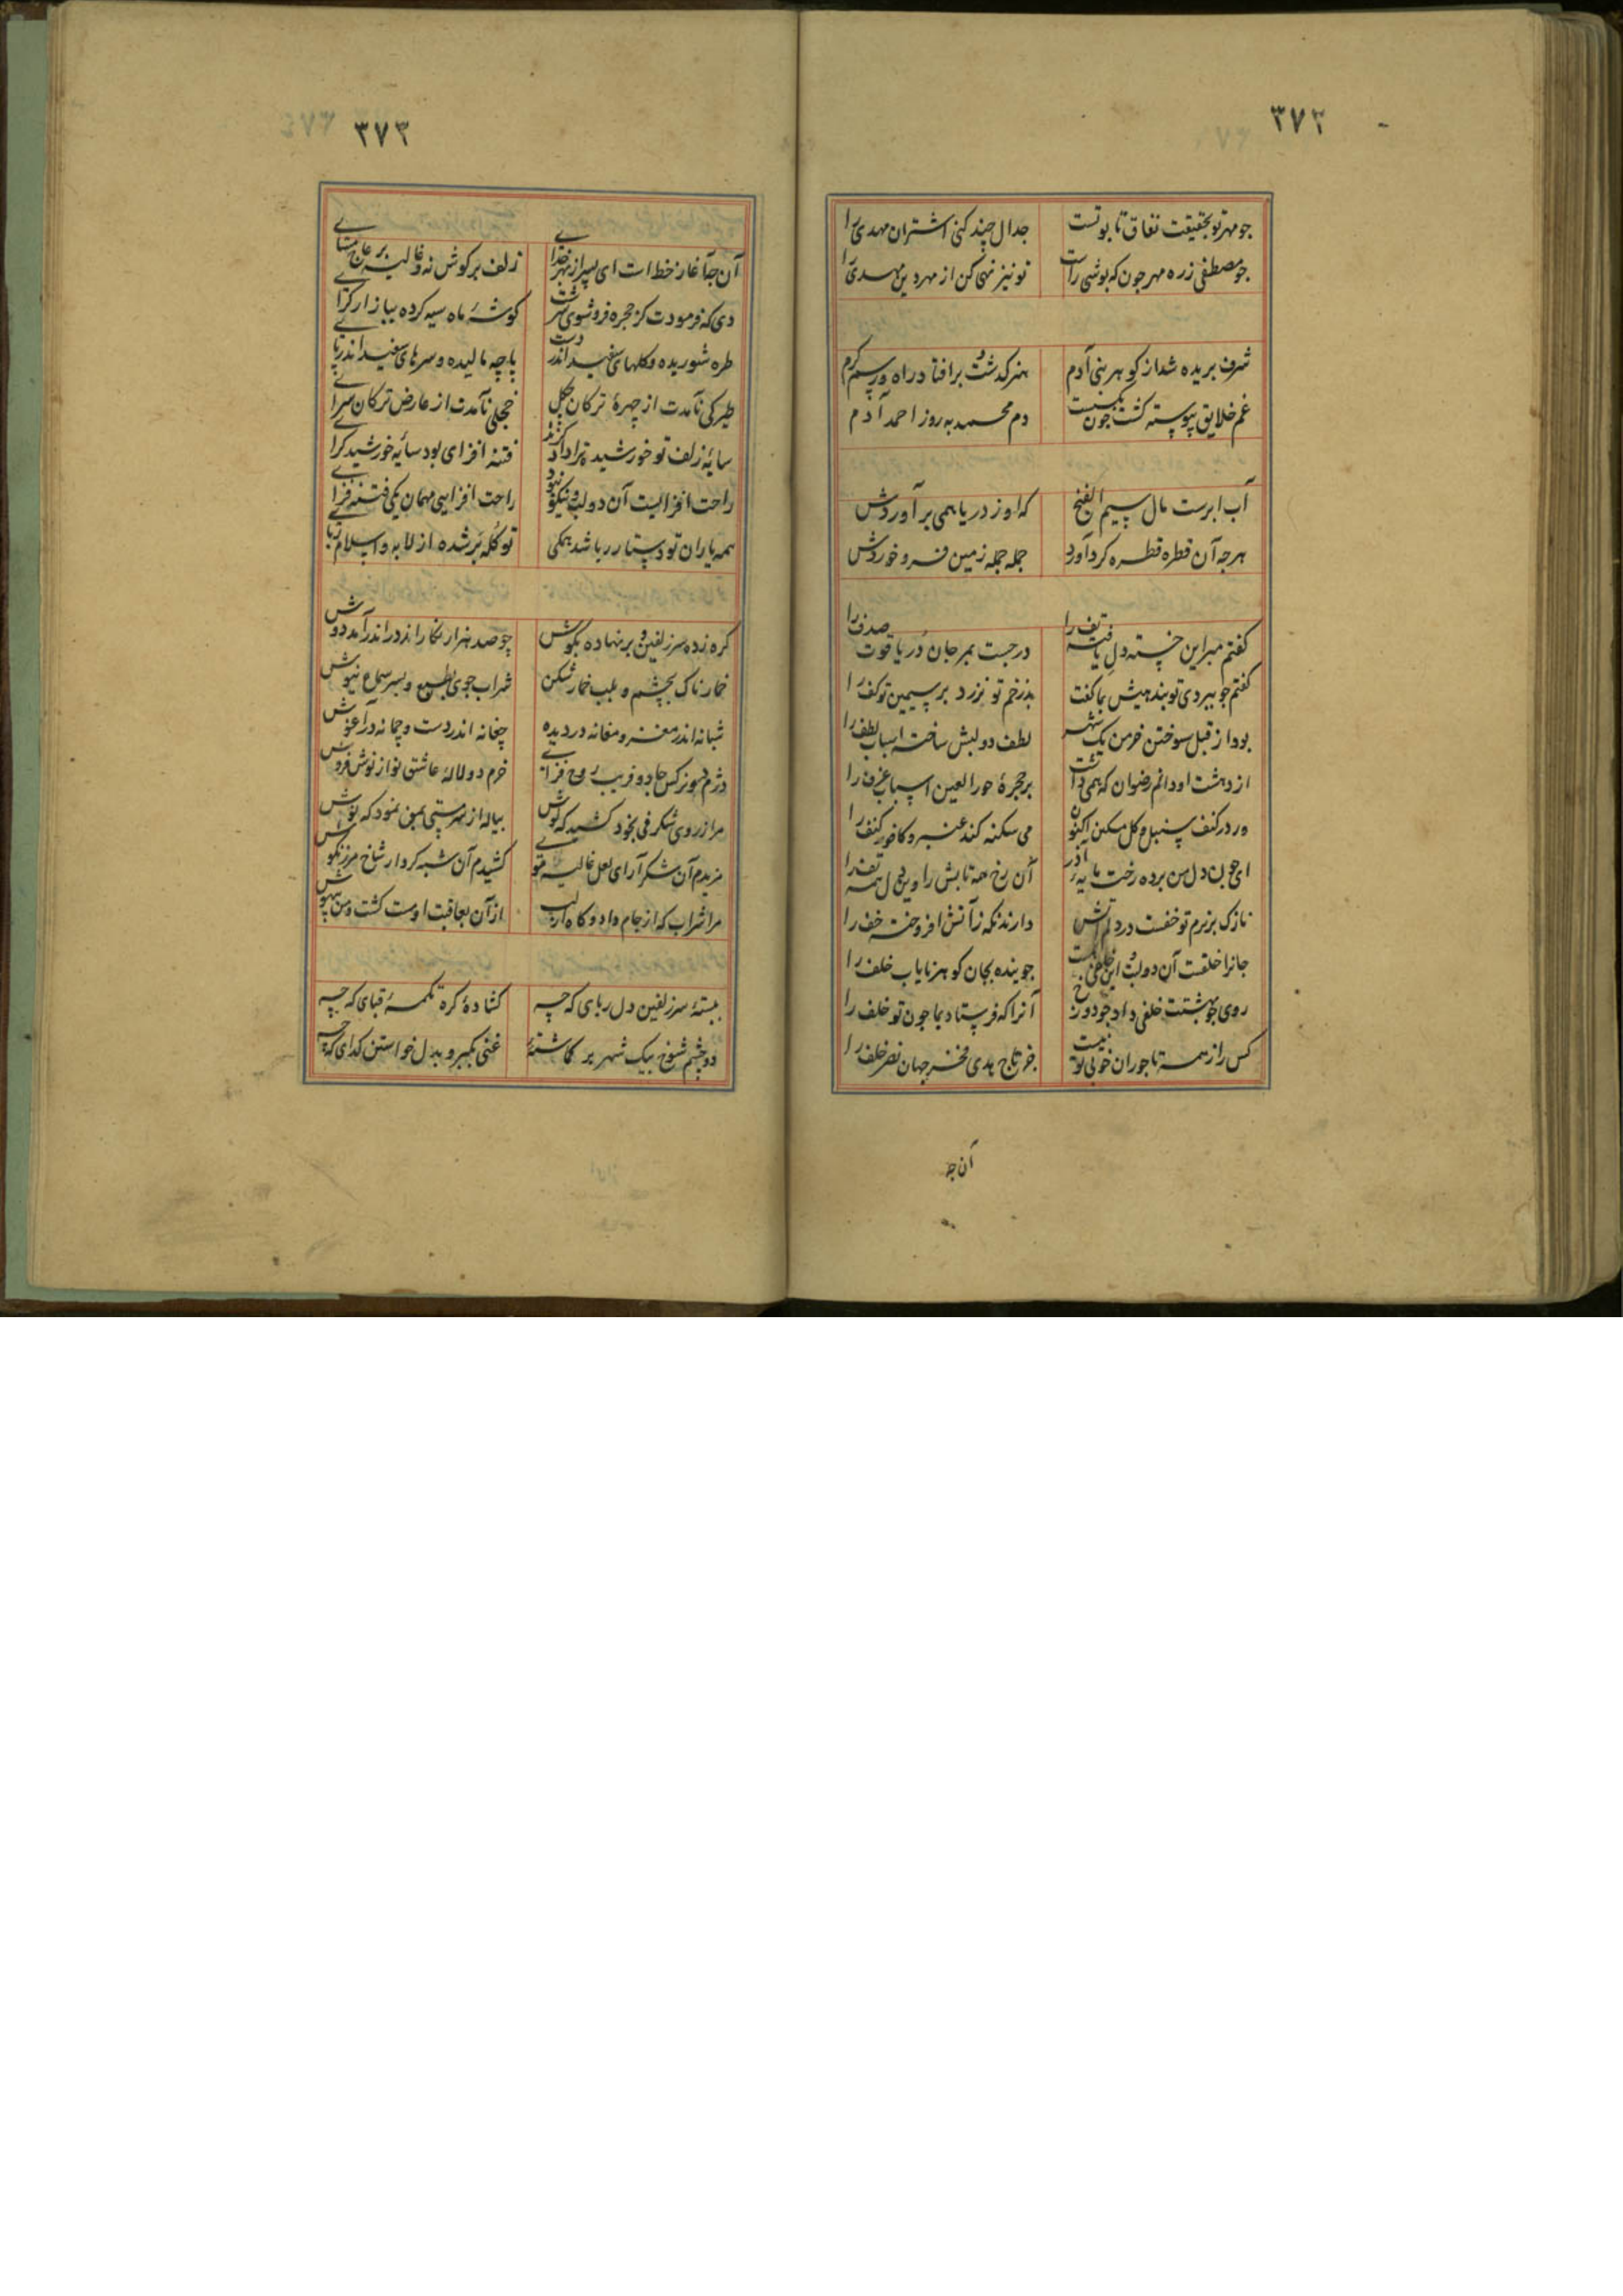 ۳۷۲
جو مهر تو بحقیقت نفاق تا بوتست جدال چند کنی اشتران مهدی را
جو مصطفی زره مهر جون که بوشی راست تو نیز نهی کن از مهر دین مهدی را
شرف بریده شد از کوهر بنی آدم هنر کذشت و برافتاد راه و رسم کرم
غم خلایق پیوسته کشت جون بکسست دم محمد به روز احمد آدم
آب ابرست مال سیم الفنج که او ز دریا همی برآوردش
هرجه آن قطره قطره کرد آورد جمله جمله زمین فرو خوردش
کفتم مبر این خسته دل یافته تف را درجست بمرجان در یاقوت صدف را
کفتم جو ببردی تو بندهیش بما کفت بذ زخم تو نزرد بر سیمین تو کف را
بود از قبل سوختن خرمن یک شهر لطف دو لبش ساخته اسباب لطف را
از دهشت او دانم رضوان که همی داشت بر حجرهٔ حورالعین اسباب غرف را
ور در کنف سنبل و کل مسکن اکنون می سکنه کند عنبر و کافور کنف را
ای جون دل من برده رخت مایه آذر آن رخ همه تابش را وین دل همه تف را
نازک بزیرم تو خفست در دلم آتش دارند نکه زآتش افروخته خف را
جانرا خلفست آن دو لب این جوینده بجان کو هز نایاب خلف را
روی جو بهشتت خلفی داد جو دوزخ آنرا که فرستاد بما جون تو خلف را
کس را ز همه تاجوران خوبی تو نیست جز تاج هدی فخر جهان نصر خلف را
آن جه
۳۷۳
آن جه آغاز خط است ای پسر از بهر خدای زلف بر کوش نه و غالیه بر عاج مسای
دی که فرمودت کز حجره فرو شوی سرشت کوشهٔ ماه سیه کرده ببازار کرای
طره شوریده و کلهای سفید اندر دست پاچه مالیده و سرهای سفید اندر پای
طیرکی نآمدت از چهرهٔ ترکان چکل خجلی نآمدت از عارض ترکان سرای
سایهٔ زلف تو خورشید ترا داد کزند فتنه افزای بود سایهٔ خورشید کرای
راحت افزایست آن دو لب و نیکو نبود راحت افزایی مهمان یکی فتنه فزای
همه یاران تو دستار ربا شد همکی تو کله بر شده از لابه و اسلام ربای
کره زده سر زلفین و بر نهاده بکوش چو صد هزار نکار از در اندر آمد دوش
خمارناک بچشم و بلب خمار شکن شراب جوی بطبع و بسر سماع نیوش
شبانه اندر مغز و مغانه در دیده چغانه اندر دست و چمانه در آغوش
دژم دو نرکس جادو فریب روح فزای خرم دو لالهٔ عاشق نواز نوش فروش
مرا ز روی شکرفی بخود کشید که کوش بیاله از سر مستی بمن نمود که نوش
مزیدم آن شکرآرای لعل غالیه موی کشیدم آن شبه کردار شاخ مرزنکوش
مرا شراب که از جام داد و کاه از لب از آن بعاقبت او مست کشت و من بیهوش
ببستهٔ سر زلفین دل ربای که چه کشادهٔ کره تکمهٔ قبای که چه
دو چشم شوخ بیک شهر بر کماشتهٔ غنی بکبر و بدل خواستن کدای که چه